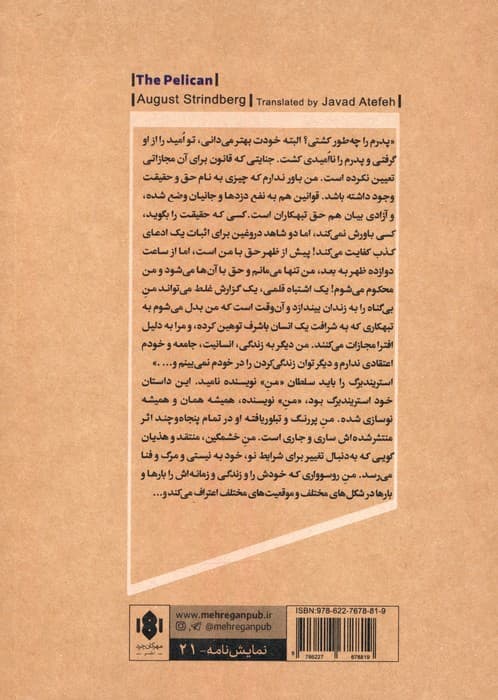 The Pelican
August Strindberg | Translated by Javad Atefeh
«پدرم را چه‌طور کشتی؟ البته خودت بهتر می‌دانی، تو اُمید را از او
گرفتی و پدرم را نااُمیدی کشت. جنایتی که قانون برای آن مجازاتی
تعیین نکرده است. من باور ندارم که چیزی به نام حق و حقیقت
وجود داشته باشد. قوانین هم به نفع دزدها و جانیان وضع شده،
و آزادی بیان هم حق تبهکاران است. کسی که حقیقت را بگوید،
کسی باورش نمی‌کند، اما دو شاهد دروغین برای اثبات یک ادعای
کذب کفایت می‌کند! پیش از ظهر حق با من است، اما از ساعت
دوازده ظهر به بعد، من تنها می‌مانم و حق با آن‌ها می‌شود و من
محکوم می‌شوم! یک اشتباه قلمی، یک گزارش غلط می‌تواند منِ
بی‌گناه را به زندان بیندازد و آن‌وقت است که من بدل می‌شوم به
تبهکاری که به شرافت یک انسان باشرف توهین کرده، و مرا به دلیل
افترا مجازات می‌کنند. من دیگر به زندگی، انسانیت، جامعه و خودم
اعتقادی ندارم و دیگر توان زندگی‌کردن را در خودم نمی‌بینم و... .»
استریندبرگ را باید سلطان «منِ» نویسنده نامید. این داستان
خود استریندبرگ بود، «منِ» نویسنده، همیشه همان و همیشه
نوسازی شده. منِ پررنگ و تبلوریافته او در تمام پنجاه‌وچند اثر
منتشرشده‌اش ساری و جاری است. منِ خشمگین، منتقد و هذیان
گویی که به‌دنبال تغییر برای شرایط نو، خود به نیستی و مرگ و فنا
می‌رسد. منِ روسوواری که خودش را و زندگی و زمانه‌اش را بارها و
بارها در شکل‌های مختلف و موقعیت‌های مختلف اعتراف می‌کند و...
www.mehreganpub.ir
@mehreganpub
نمایش‌نامه - ۲۱
مهرگان خرد
ISBN: 978-622-7678-81-9
9 786227 678819